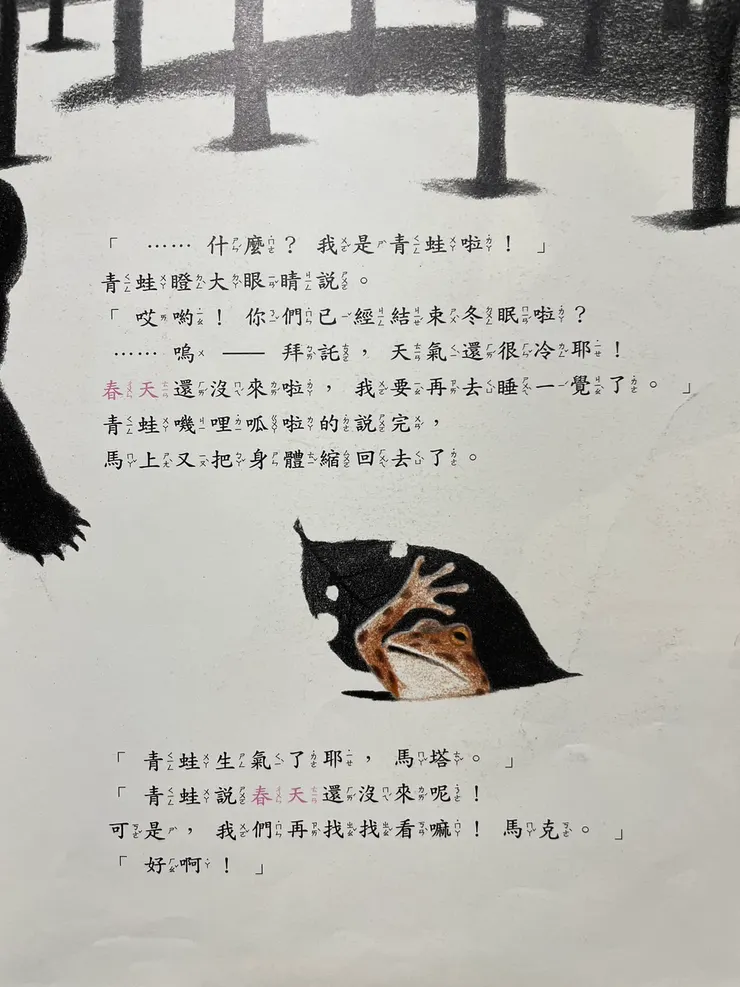 「……什麼？我是青蛙啦！」
青蛙瞪大眼睛說。
「哎喲！你們已經結束冬眠啦？
……嗚——拜託，天氣還很冷耶！
春天還沒來啦，我要再去睡一覺了。」
青蛙嘰哩呱啦的說完，
馬上又把身體縮回去了。
「青蛙生氣了耶，馬塔。」
「青蛙說春天還沒來呢！
可是，我們再找找看嘛！馬克。」
「好啊！」